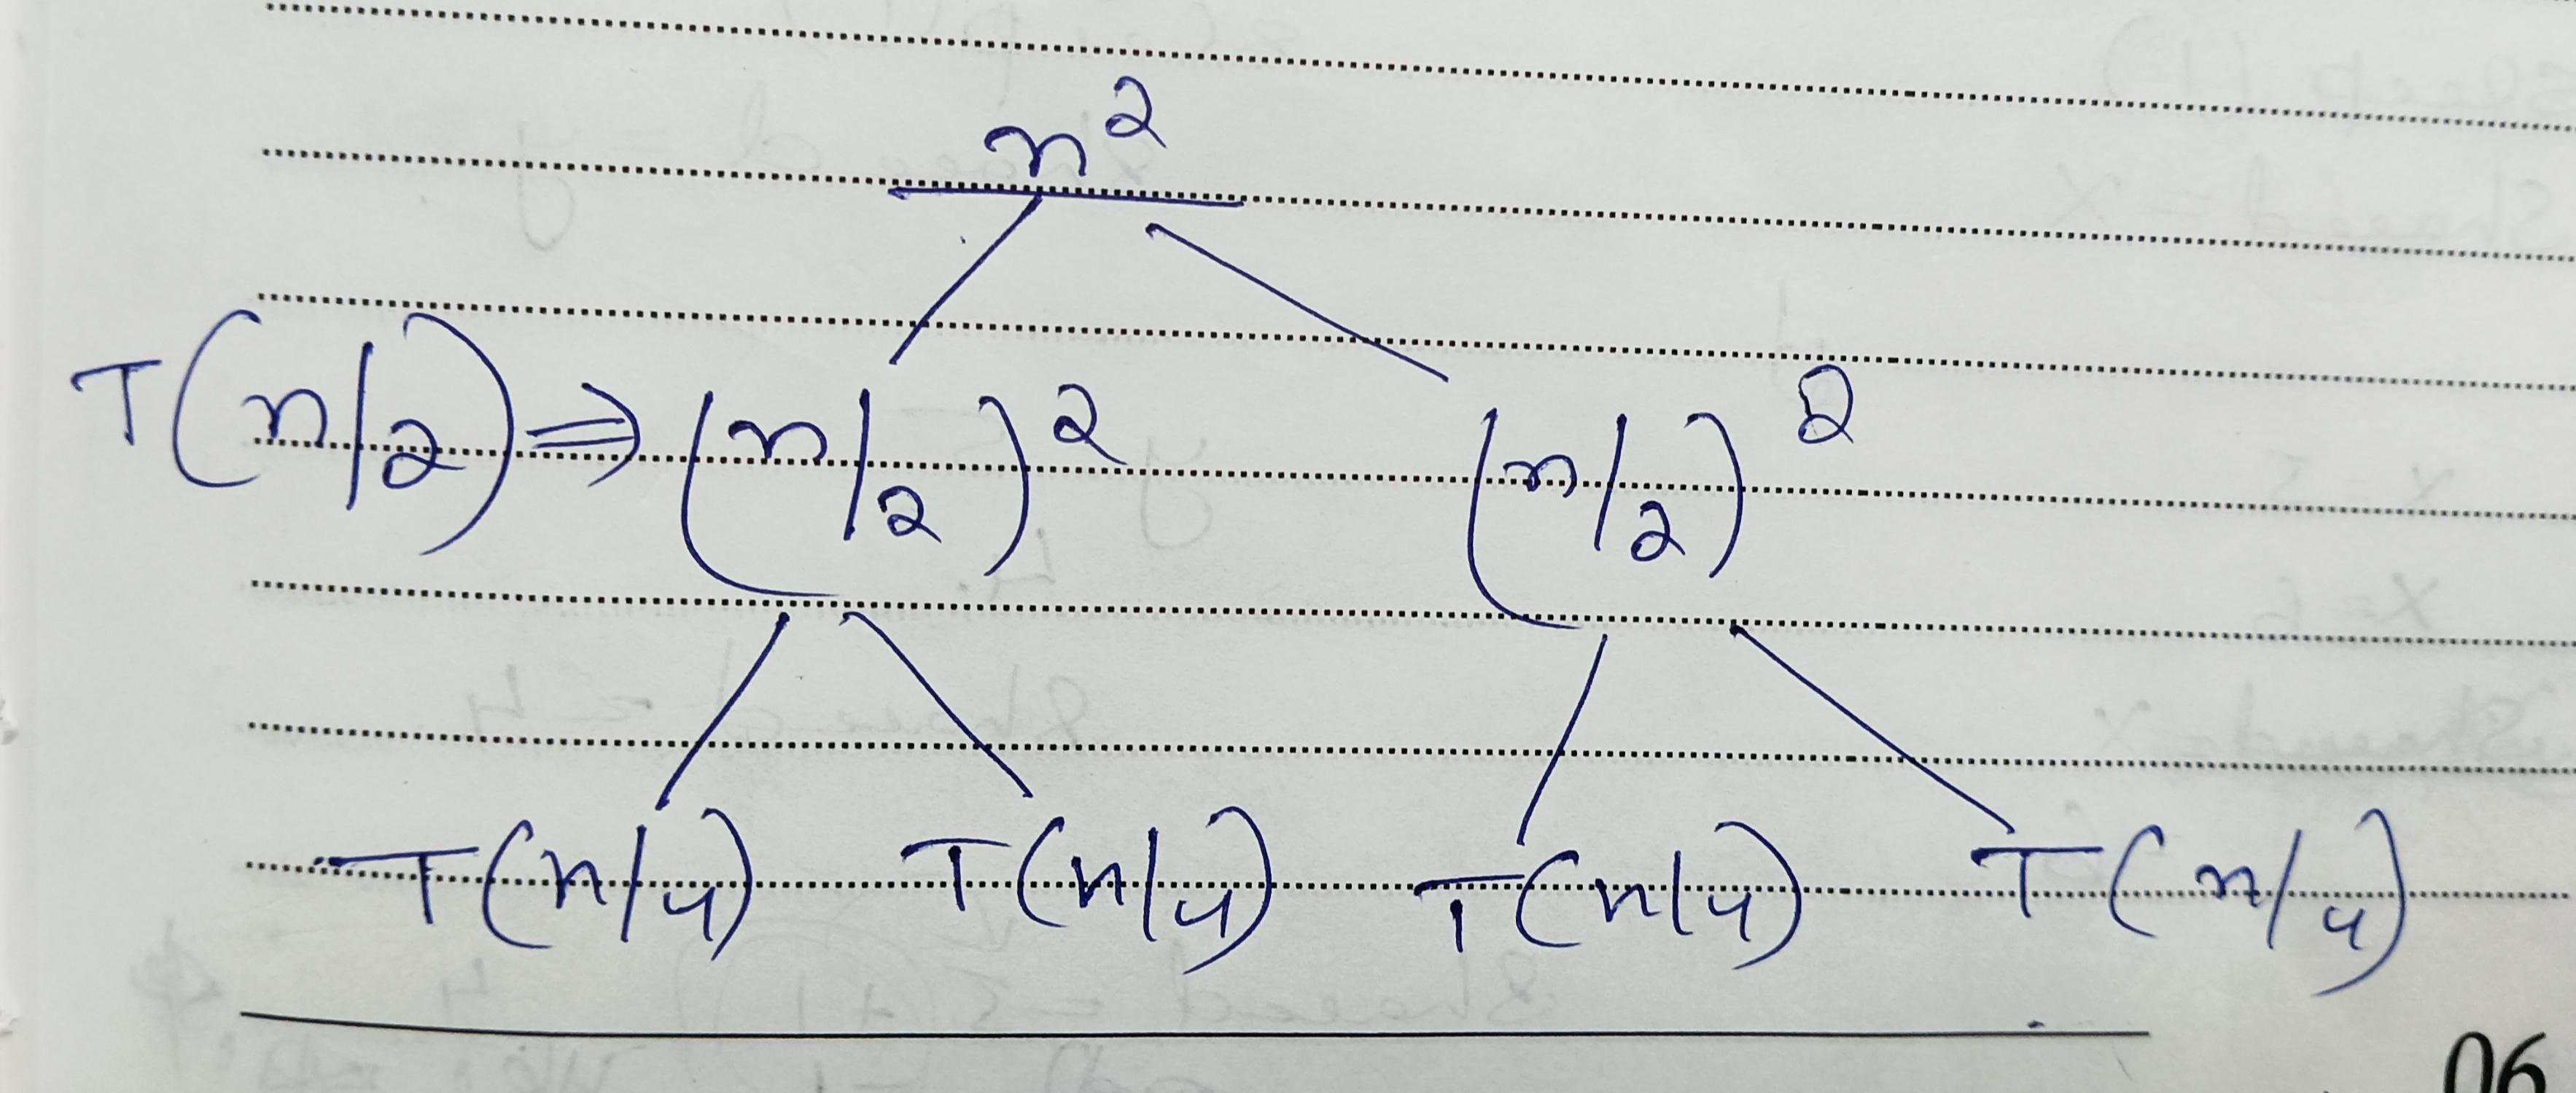 n²
T(n/2) ⇒ (n/2)² (n/2)²
T(n/4) T(n/4) T(n/4) T(n/4)
06